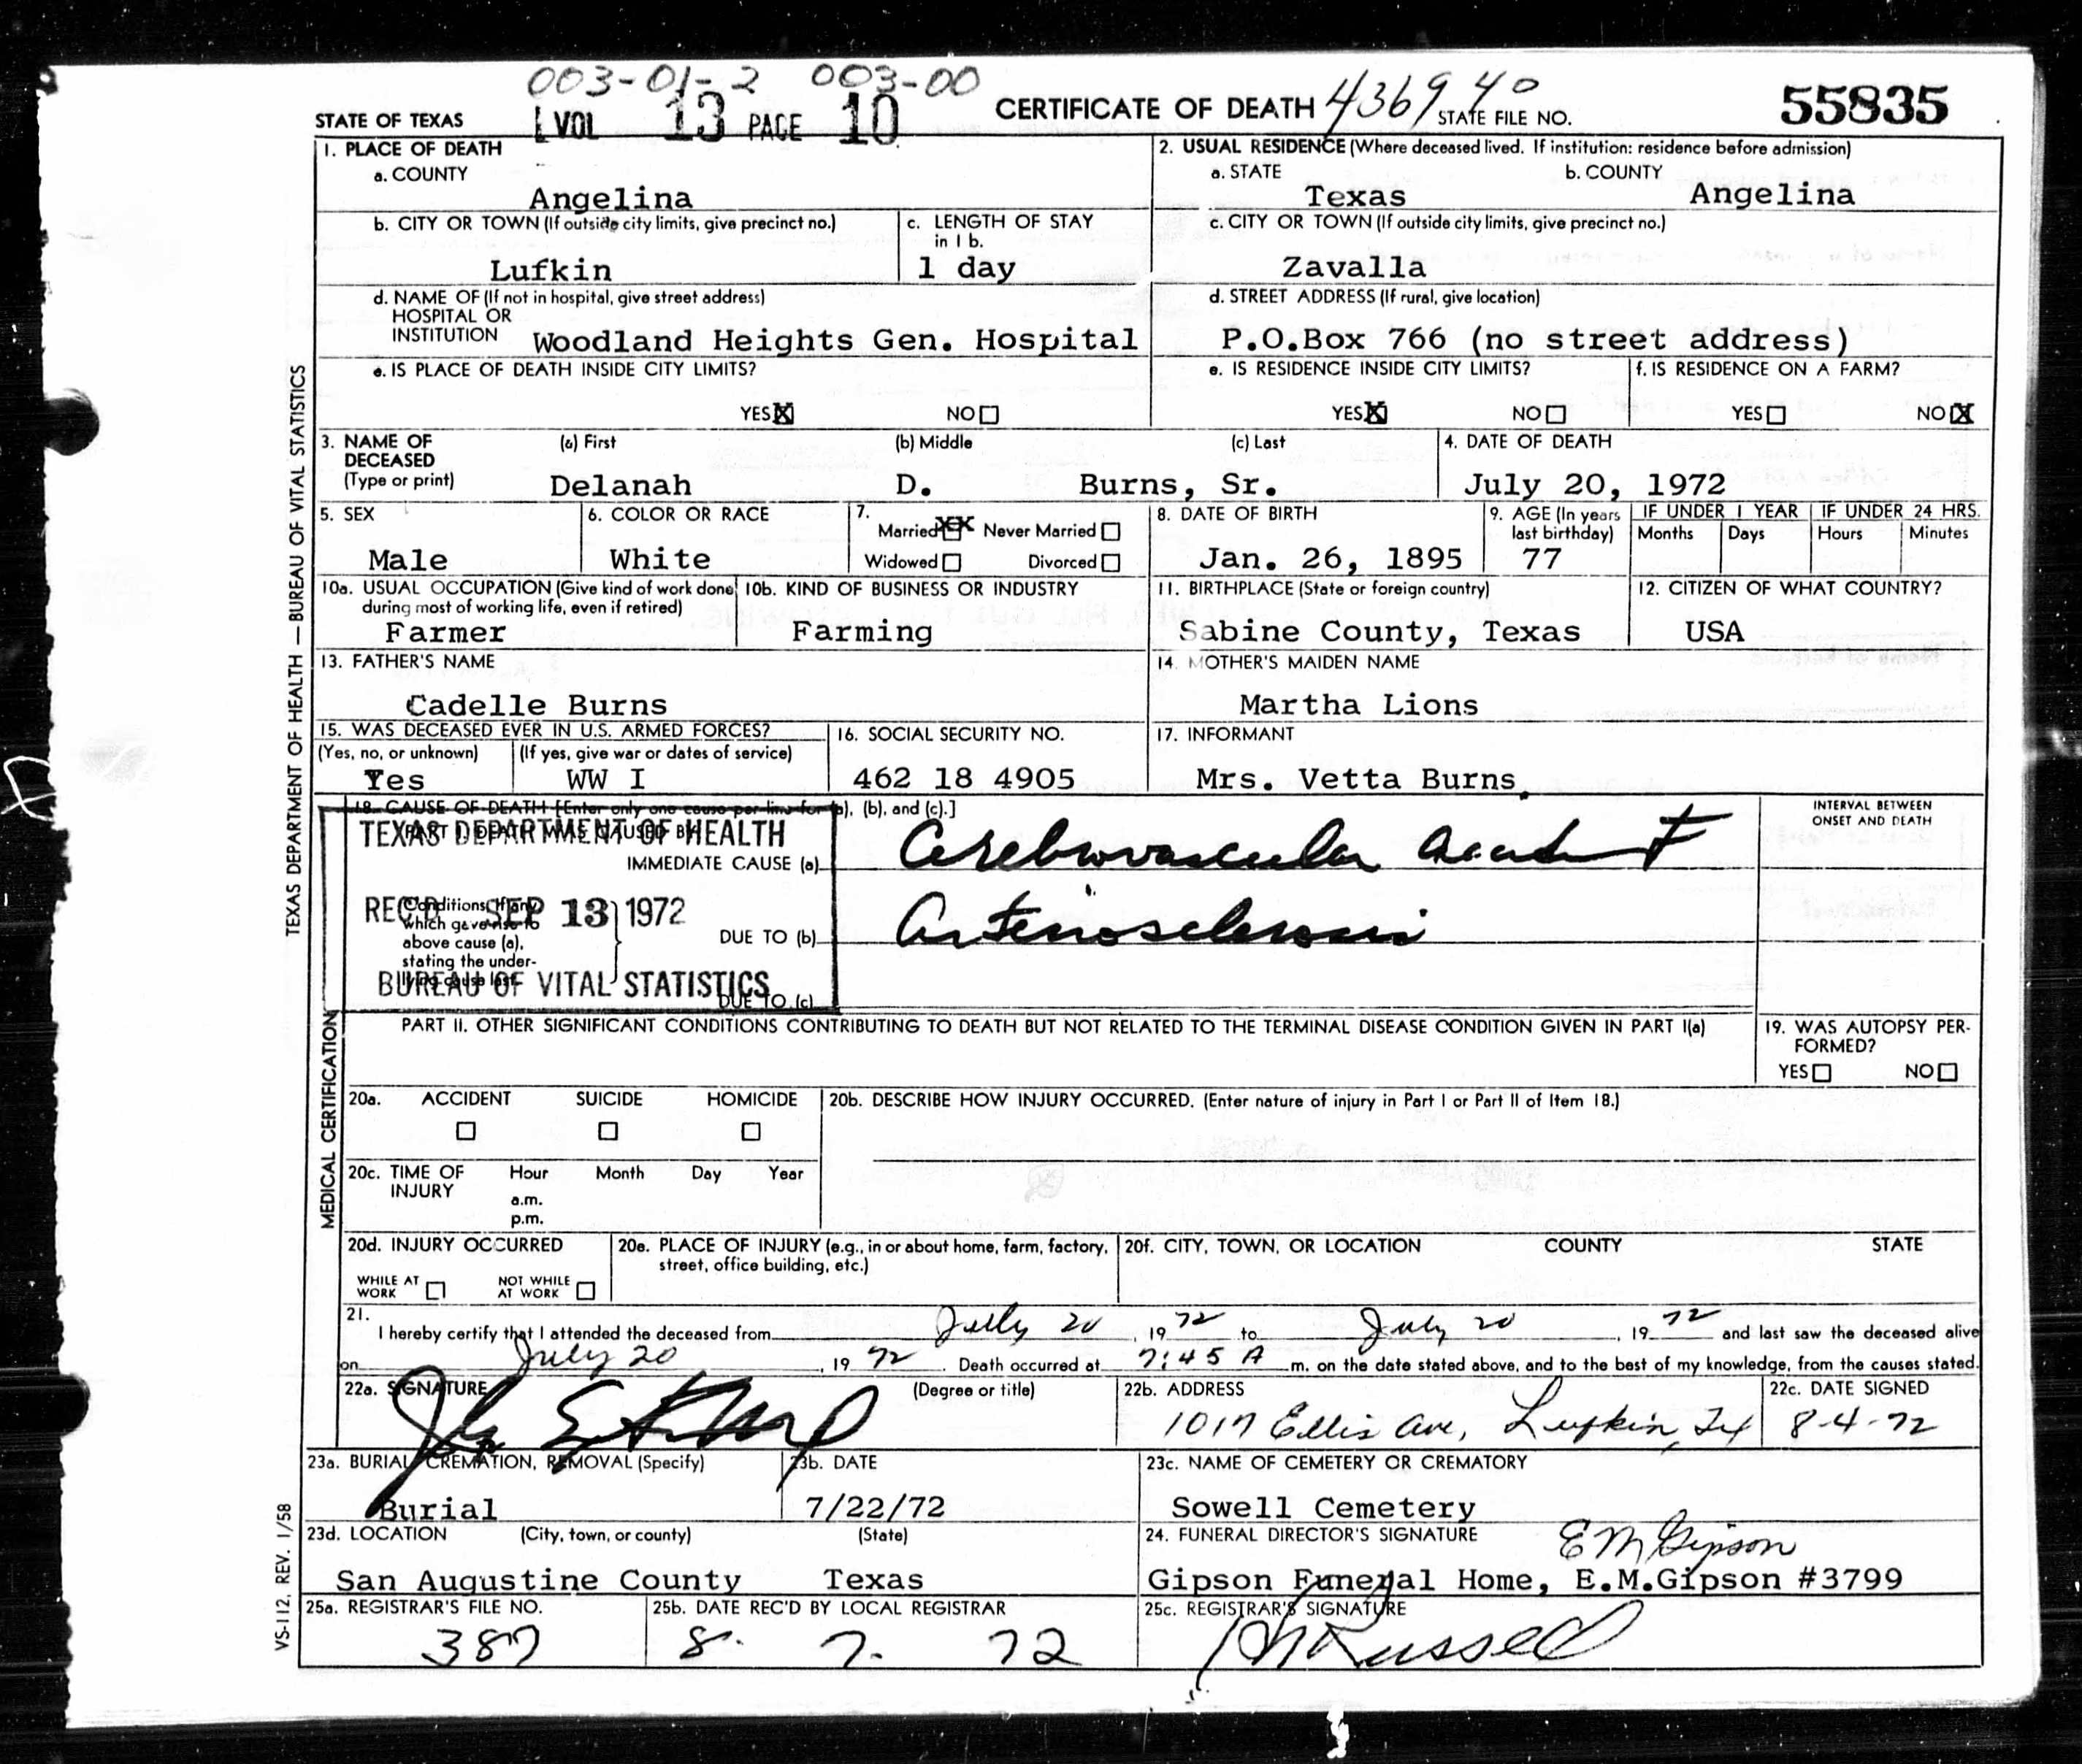 003-01-2 003-00
STATE OF TEXAS VOL 13 PAGE 10 CERTIFICATE OF DEATH 436940 STATE FILE NO. 55835
1. PLACE OF DEATH
a. COUNTY
Angelina
2. USUAL RESIDENCE (Where deceased lived. If institution: residence before admission)
a. STATE b. COUNTY
Texas Angelina
b. CITY OR TOWN (If outside city limits, give precinct no.)
Lufkin
c. LENGTH OF STAY
in 1 b.
1 day
c. CITY OR TOWN (If outside city limits, give precinct no.)
Zavalla
d. NAME OF (If not in hospital, give street address)
HOSPITAL OR
INSTITUTION Woodland Heights Gen. Hospital
d. STREET ADDRESS (If rural, give location)
P.O.Box 766 (no street address)
e. IS PLACE OF DEATH INSIDE CITY LIMITS?
YES X NO
e. IS RESIDENCE INSIDE CITY LIMITS?
YES X NO
f. IS RESIDENCE ON A FARM?
YES NO X
3. NAME OF (a) First (b) Middle (c) Last
DECEASED
(Type or print) Delanah D. Burns, Sr.
4. DATE OF DEATH
July 20, 1972
5. SEX
Male
6. COLOR OR RACE
White
7.
Married XX Never Married
Widowed Divorced
8. DATE OF BIRTH
Jan. 26, 1895
9. AGE (In years
last birthday)
77
IF UNDER 1 YEAR IF UNDER 24 HRS.
Months Days Hours Minutes
10a. USUAL OCCUPATION (Give kind of work done
during most of working life, even if retired)
Farmer
10b. KIND OF BUSINESS OR INDUSTRY
Farming
11. BIRTHPLACE (State or foreign country)
Sabine County, Texas
12. CITIZEN OF WHAT COUNTRY?
USA
13. FATHER'S NAME
Cadelle Burns
14. MOTHER'S MAIDEN NAME
Martha Lions
15. WAS DECEASED EVER IN U.S. ARMED FORCES?
(Yes, no, or unknown) (If yes, give war or dates of service)
Yes WW I
16. SOCIAL SECURITY NO.
462 18 4905
17. INFORMANT
Mrs. Vetta Burns
18. CAUSE OF DEATH [Enter only one cause per line for (a), (b), and (c).]
PART I. DEATH WAS CAUSED BY:
TEXAS DEPARTMENT OF HEALTH
IMMEDIATE CAUSE (a) Cerebrovascular accident
REC'D SEP 13 1972
Conditions, if any,
which gave rise to
above cause (a),
stating the under-
lying cause last.
DUE TO (b) Arteriosclerosis
BUREAU OF VITAL STATISTICS
DUE TO (c)
INTERVAL BETWEEN
ONSET AND DEATH
PART II. OTHER SIGNIFICANT CONDITIONS CONTRIBUTING TO DEATH BUT NOT RELATED TO THE TERMINAL DISEASE CONDITION GIVEN IN PART I(a)
19. WAS AUTOPSY PER-
FORMED?
YES NO
20a. ACCIDENT SUICIDE HOMICIDE
20b. DESCRIBE HOW INJURY OCCURRED. (Enter nature of injury in Part I or Part II of Item 18.)
20c. TIME OF Hour Month Day Year
INJURY
a.m.
p.m.
20d. INJURY OCCURRED
WHILE AT NOT WHILE
WORK AT WORK
20e. PLACE OF INJURY (e.g., in or about home, farm, factory,
street, office building, etc.)
20f. CITY, TOWN, OR LOCATION COUNTY STATE
21.
I hereby certify that I attended the deceased from July 20, 1972 to July 20, 1972 and last saw the deceased alive
on July 20, 1972. Death occurred at 7:45 A m. on the date stated above, and to the best of my knowledge, from the causes stated.
22a. SIGNATURE (Degree or title)
22b. ADDRESS
1017 Ellis Ave, Lufkin, Tex
22c. DATE SIGNED
8-4-72
23a. BURIAL, CREMATION, REMOVAL (Specify)
Burial
23b. DATE
7/22/72
23c. NAME OF CEMETERY OR CREMATORY
Sowell Cemetery
23d. LOCATION (City, town, or county) (State)
San Augustine County Texas
24. FUNERAL DIRECTOR'S SIGNATURE E M Gipson
Gipson Funeral Home, E.M.Gipson #3799
25a. REGISTRAR'S FILE NO.
387
25b. DATE REC'D BY LOCAL REGISTRAR
8. 7. 72
25c. REGISTRAR'S SIGNATURE
Russell
TEXAS DEPARTMENT OF HEALTH — BUREAU OF VITAL STATISTICS
MEDICAL CERTIFICATION
VS-112, REV. 1/58